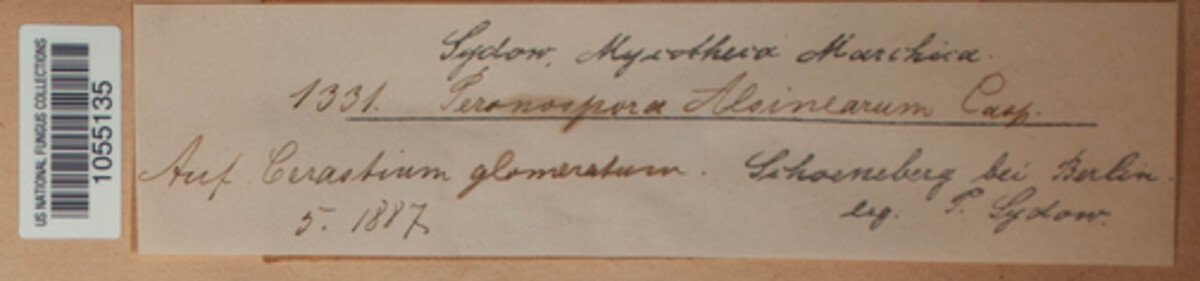 US NATIONAL FUNGUS COLLECTIONS
1055135
Sydow, Mycotheca Marchica.
1331. Peronospora Alsinearum Casp.
Auf Cerastium glomeratum. Schoeneberg bei Berlin.
5. 1887. leg. P. Sydow.